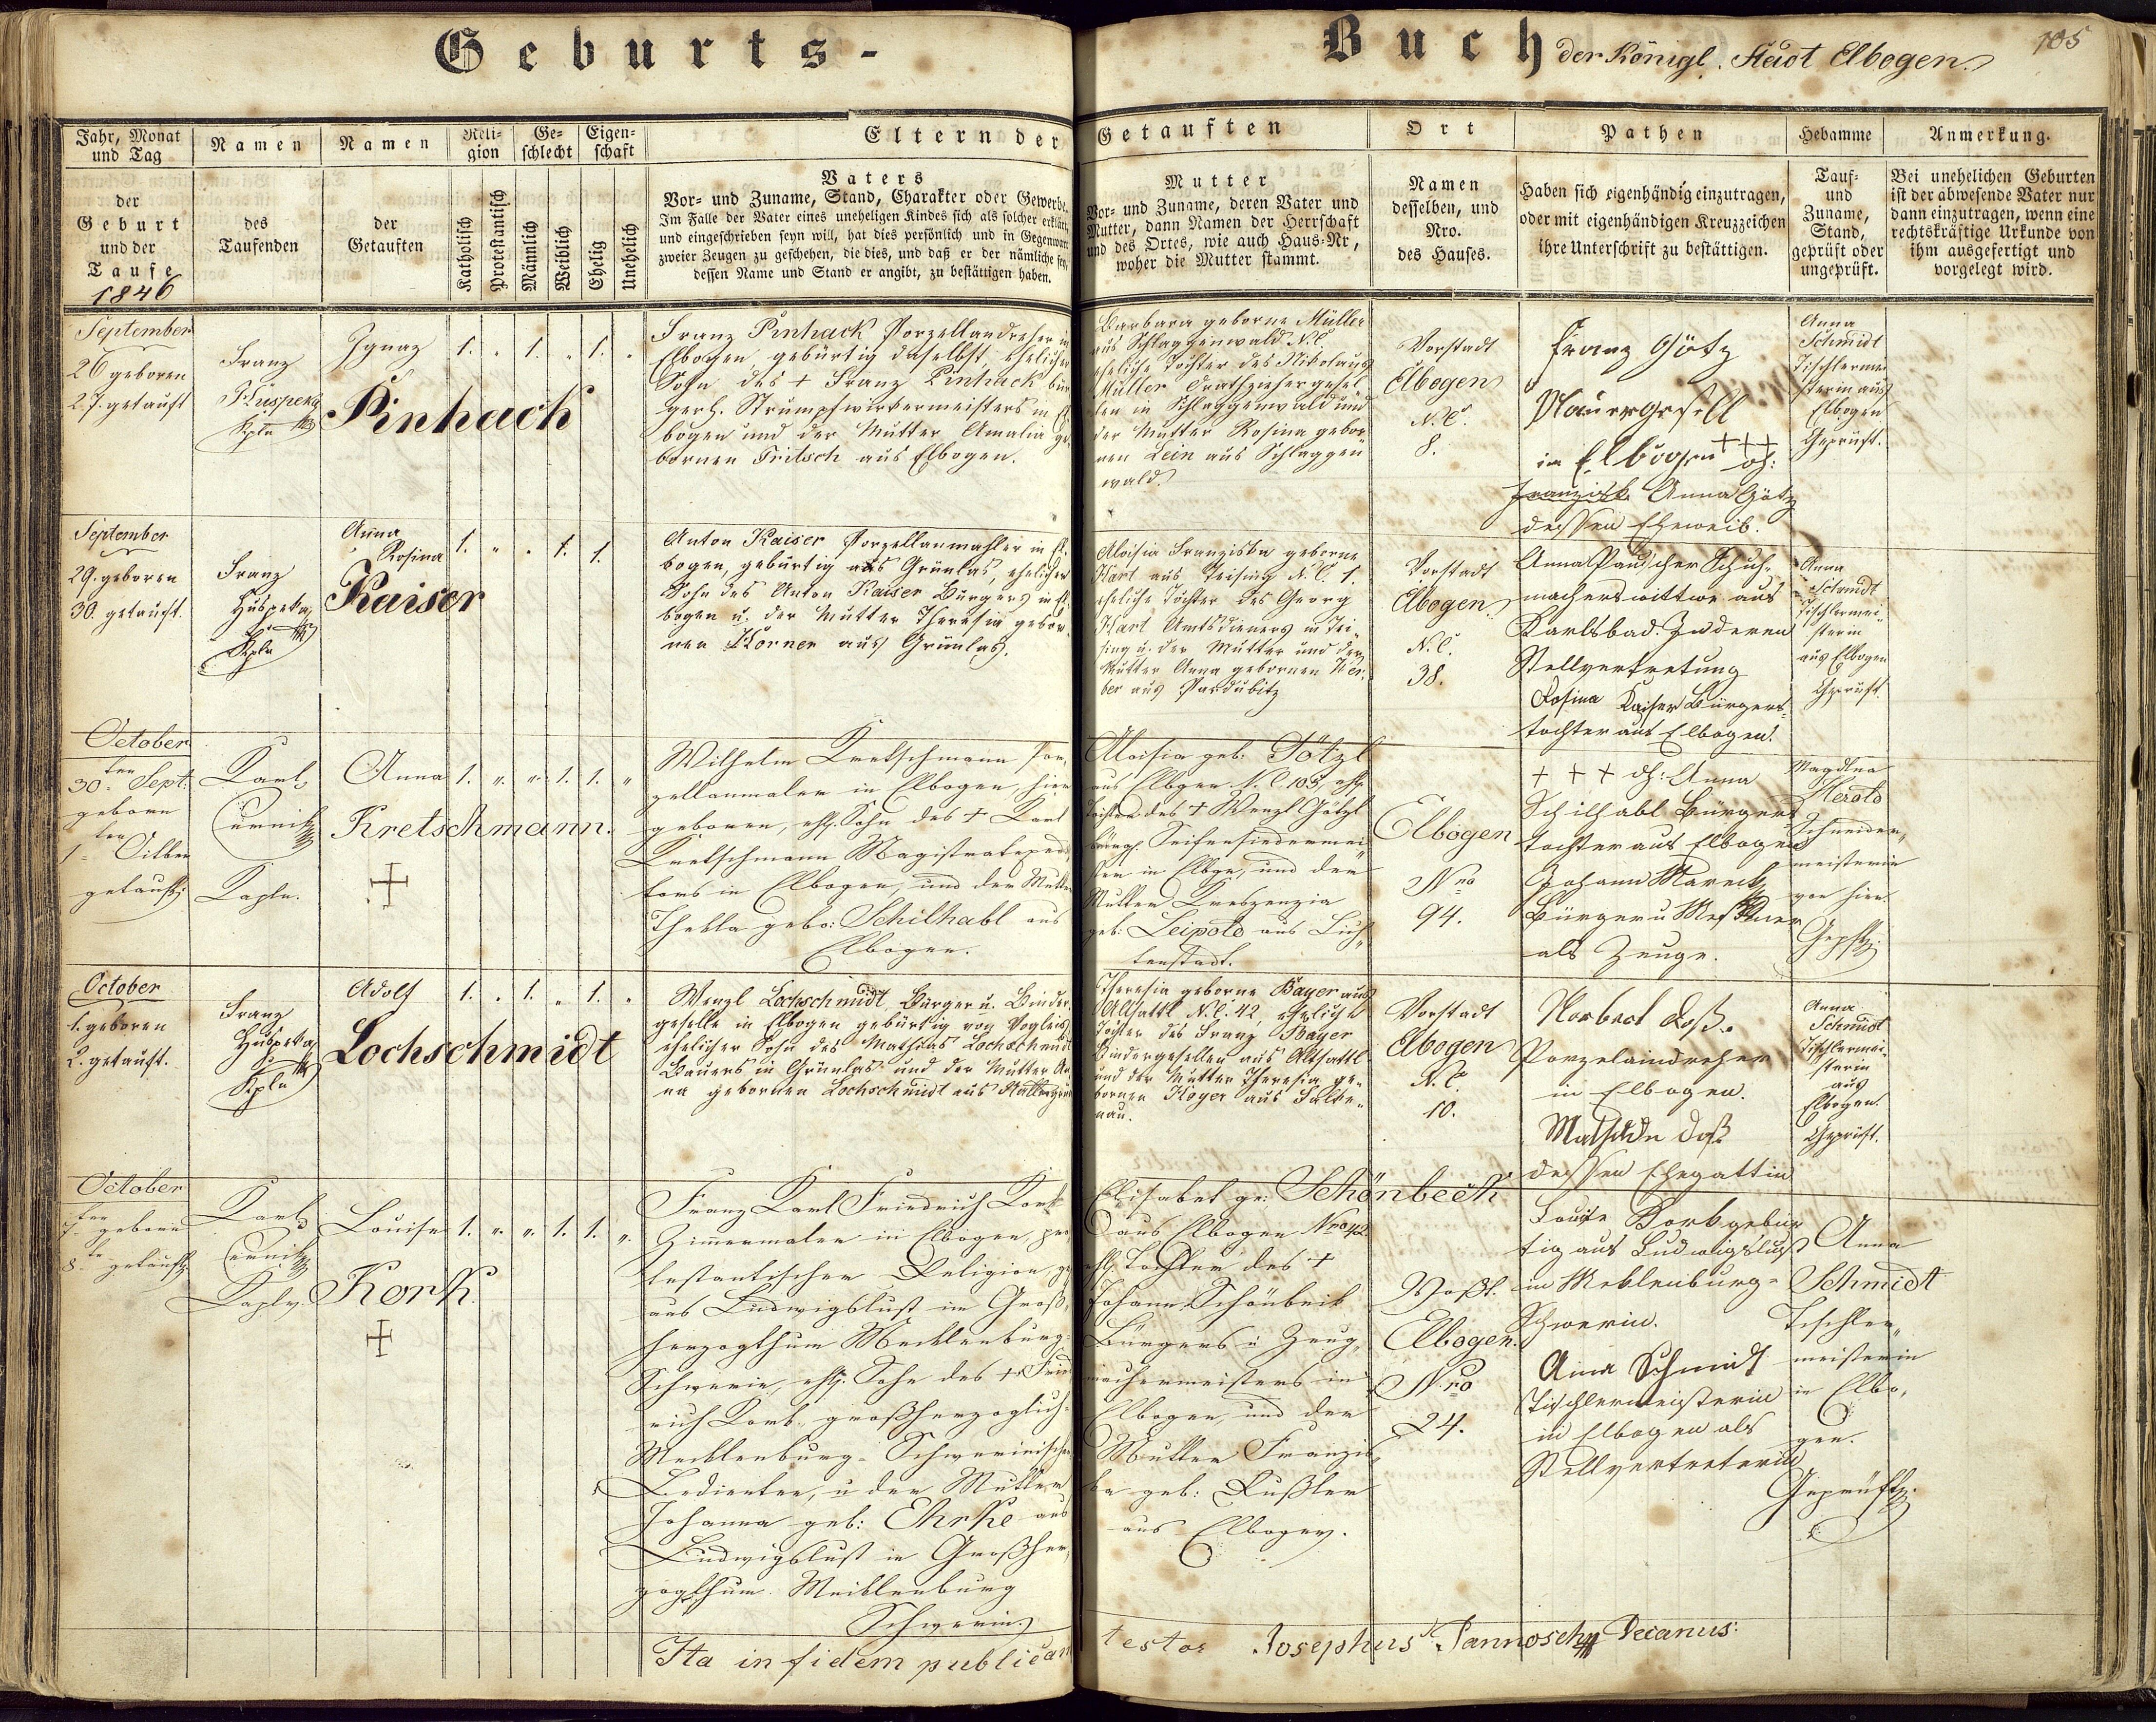 Geburts-
Buch der Königl. Stadt Elbogen.
105
Jahr, Monat und Tag
der Geburt und der Taufe
1846
Namen
des Taufenden
Namen
der Getauften
Reli-gion
Katholisch
Protestantisch
Ge-schlecht
Männlich
Weiblich
Eigen-schaft
Ehelig
Unehelich
Eltern der Getauften
Vaters
Vor- und Zuname, Stand, Charakter oder Gewerbe.
Im Falle der Vater eines uneheligen Kindes sich als solcher erklärt,
und eingeschrieben seyn will, hat dies persönlich und in Gegenwart
zweier Zeugen zu geschehen, die dies, und daß er der nämliche sey,
dessen Name und Stand er angibt, zu bestättigen haben.
Mutter
Vor- und Zuname, deren Vater und
Mutter, dann Namen der Herrschaft
und des Ortes, wie auch Haus-Nr,
woher die Mutter stammt.
Ort
Namen
desselben, und
Nro.
des Hauses.
Pathen
Haben sich eigenhändig einzutragen,
oder mit eigenhändigen Kreuzzeichen
ihre Unterschrift zu bestättigen.
Hebamme
Tauf-
und
Zuname,
Stand,
geprüft oder
ungeprüft.
Anmerkung.
Bei unehelichen Geburten
ist der abwesende Vater nur
dann einzutragen, wenn eine
rechtskräftige Urkunde von
ihm ausgefertigt und
vorgelegt wird.
September
26 geboren
27. getauft
Franz
Kpln
Ignaz
Pinhack
1. 1. 1.
Franz Pinhack Porzellandreher in
Elbogen gebürtig daselbst, ehelicher
Sohn des + Franz Pinhack bür
gerl. Strumpfwirkermeisters in El
bogen und der Mutter Amalia ge
bornen Fritsch aus Elbogen.
Barbara geborne Müller
aus Schlaggenwald N.C.
eheliche Tochter des Nikolaus
Müller Drathziehergesel
len in Schlaggenwald und
der Mutter Rosina gebor
nen Lein aus Schlaggen
wald.
Vorstadt
Elbogen
N.C.
8.
Franz Götz
Mauergesell
in Elbogen +++
Anna Götz
dessen Eheweib.
Anna
Schmidt
Tischlermei
sterin aus
Elbogen
Geprüft.
September
29. geboren
30. getauft.
Franz
Huspeka
Kpln
Anna
Rosina
Kaiser
1. 1. 1.
Anton Kaiser Porzellanmahler in El
bogen, gebürtig aus Grünlas, ehelicher
Sohn des Anton Kaiser Bürgers in El
bogen u. der Mutter Theresia gebor
nen Korner aus Grünlas.
Aloisia Franziska geborne
Hart aus Teising N.C. 1.
eheliche Tochter des Georg
Hart Amtsdieners in Tei-
sing u. der Mutter und der
Mutter Anna gebornen We
ber aus Pardubitz
Vorstadt
Elbogen
N.C.
38.
Schuh-
macherswittwe aus
Karlsbad. In deren
Stellvertretung
Rosina Kaiser Bürgers-
tochter aus Elbogen.
Anna
Schmidt
Tischlermei-
sterin
aus Elbogen
Geprüft.
October
30ten Sept:
geborn
1ten
getauft:
Karl
Kapln.
Anna
Kretschmann.
1. 1. 1.
Wilhelm Kretschmann Por
zellanmaler in Elbogen, hier
geboren, ehl. Sohn des + Karl
Kretschmann
in Elbogen, und der Mutter
Thekla geb: Schilhabl aus
Elbogen.
Aloisia geb: Götzl
aus Elbogen N.C. 103, ehl.
Tochter des + Wenzl Götzl
bürgl. Seifensiedermei
ster in Elbgn, und der
Mutter Kreszenzia
geb: Leipold aus Lich
tenstadt.
Elbogen
Nro
94.
+ + + dh: Anna
Schilhabl Bürgers
tochter aus Elbogen
Johann Mareck
Bürger u
als Zeuge.
Magdlna
Herold
Schneider-
meisterin
von hier
October
1. geboren
2. getauft.
Franz
Huspeka
Kpln
Adolf
Lochschmidt
1. 1. 1.
Wenzl Lochschmidt Bürger u. Binder
geselle in Elbogen gebürtig von
ehelicher Sohn des Mathias Lochschmidt
Bauers in Grünlas und der Mutter An
na gebornen Lochschmidt aus
Theresia geborne Bayer aus
Altsattl N.C. 42, eheliche
Tochter des Franz Bayer
Bindergesellen aus Altsattl
und der Mutter Theresia ge-
bornen Hoyer aus Falke-
nau.
Vorstadt
Elbogen
N.C.
10.
Norbert Doß.
Porzelaindreher
in Elbogen.
Mathilde Doß
dessen Ehegattin
Anna
Schmidt
Tischlermei-
sterin
aus
Elbogen.
Geprüft.
October
7ten geborn
8te getauft
Karl
Kapln.
Louise
Kork
1. 1. 1.
Franz Karl Friedrich Kork
Zimmermaler in Elbogen, pro
testantischer Religion, ge
aus Ludwigslust im Groß-
herzogthum Mecklenburg-
Schwerin, ehl. Sohn des + Fried
rich Kork, großherzoglich-
Mecklenburg-Schwerinischer
Bedienter, u der Mutter
Johanna geb: Ehrke aus
Ludwigslust in Großher
zogthum Mecklenburg
Schwerin.
Elisabet ge: Schönbeck
aus Elbogen Nro 42
ehl. Tochter des +
Johann Schönbeck
Bürgers u Zeug-
machermeisters in
Elbogen, und der
Mutter Franzis
ka geb:
aus Elbogen.
Vorst.
Elbogen.
Nro
24.
Louise Kork gebür
tig aus Ludwigslust
in Meklenburg-
Schwerin.
Anna Schmidt
Tischlermeisterin
in Elbogen als
Stellvertreterin
Anna
Schmidt
Tischler-
meisterin
in Elbo-
gen.
Geprüft.
Ita in fidem publicam testor Josephus Pannosch Decanus: